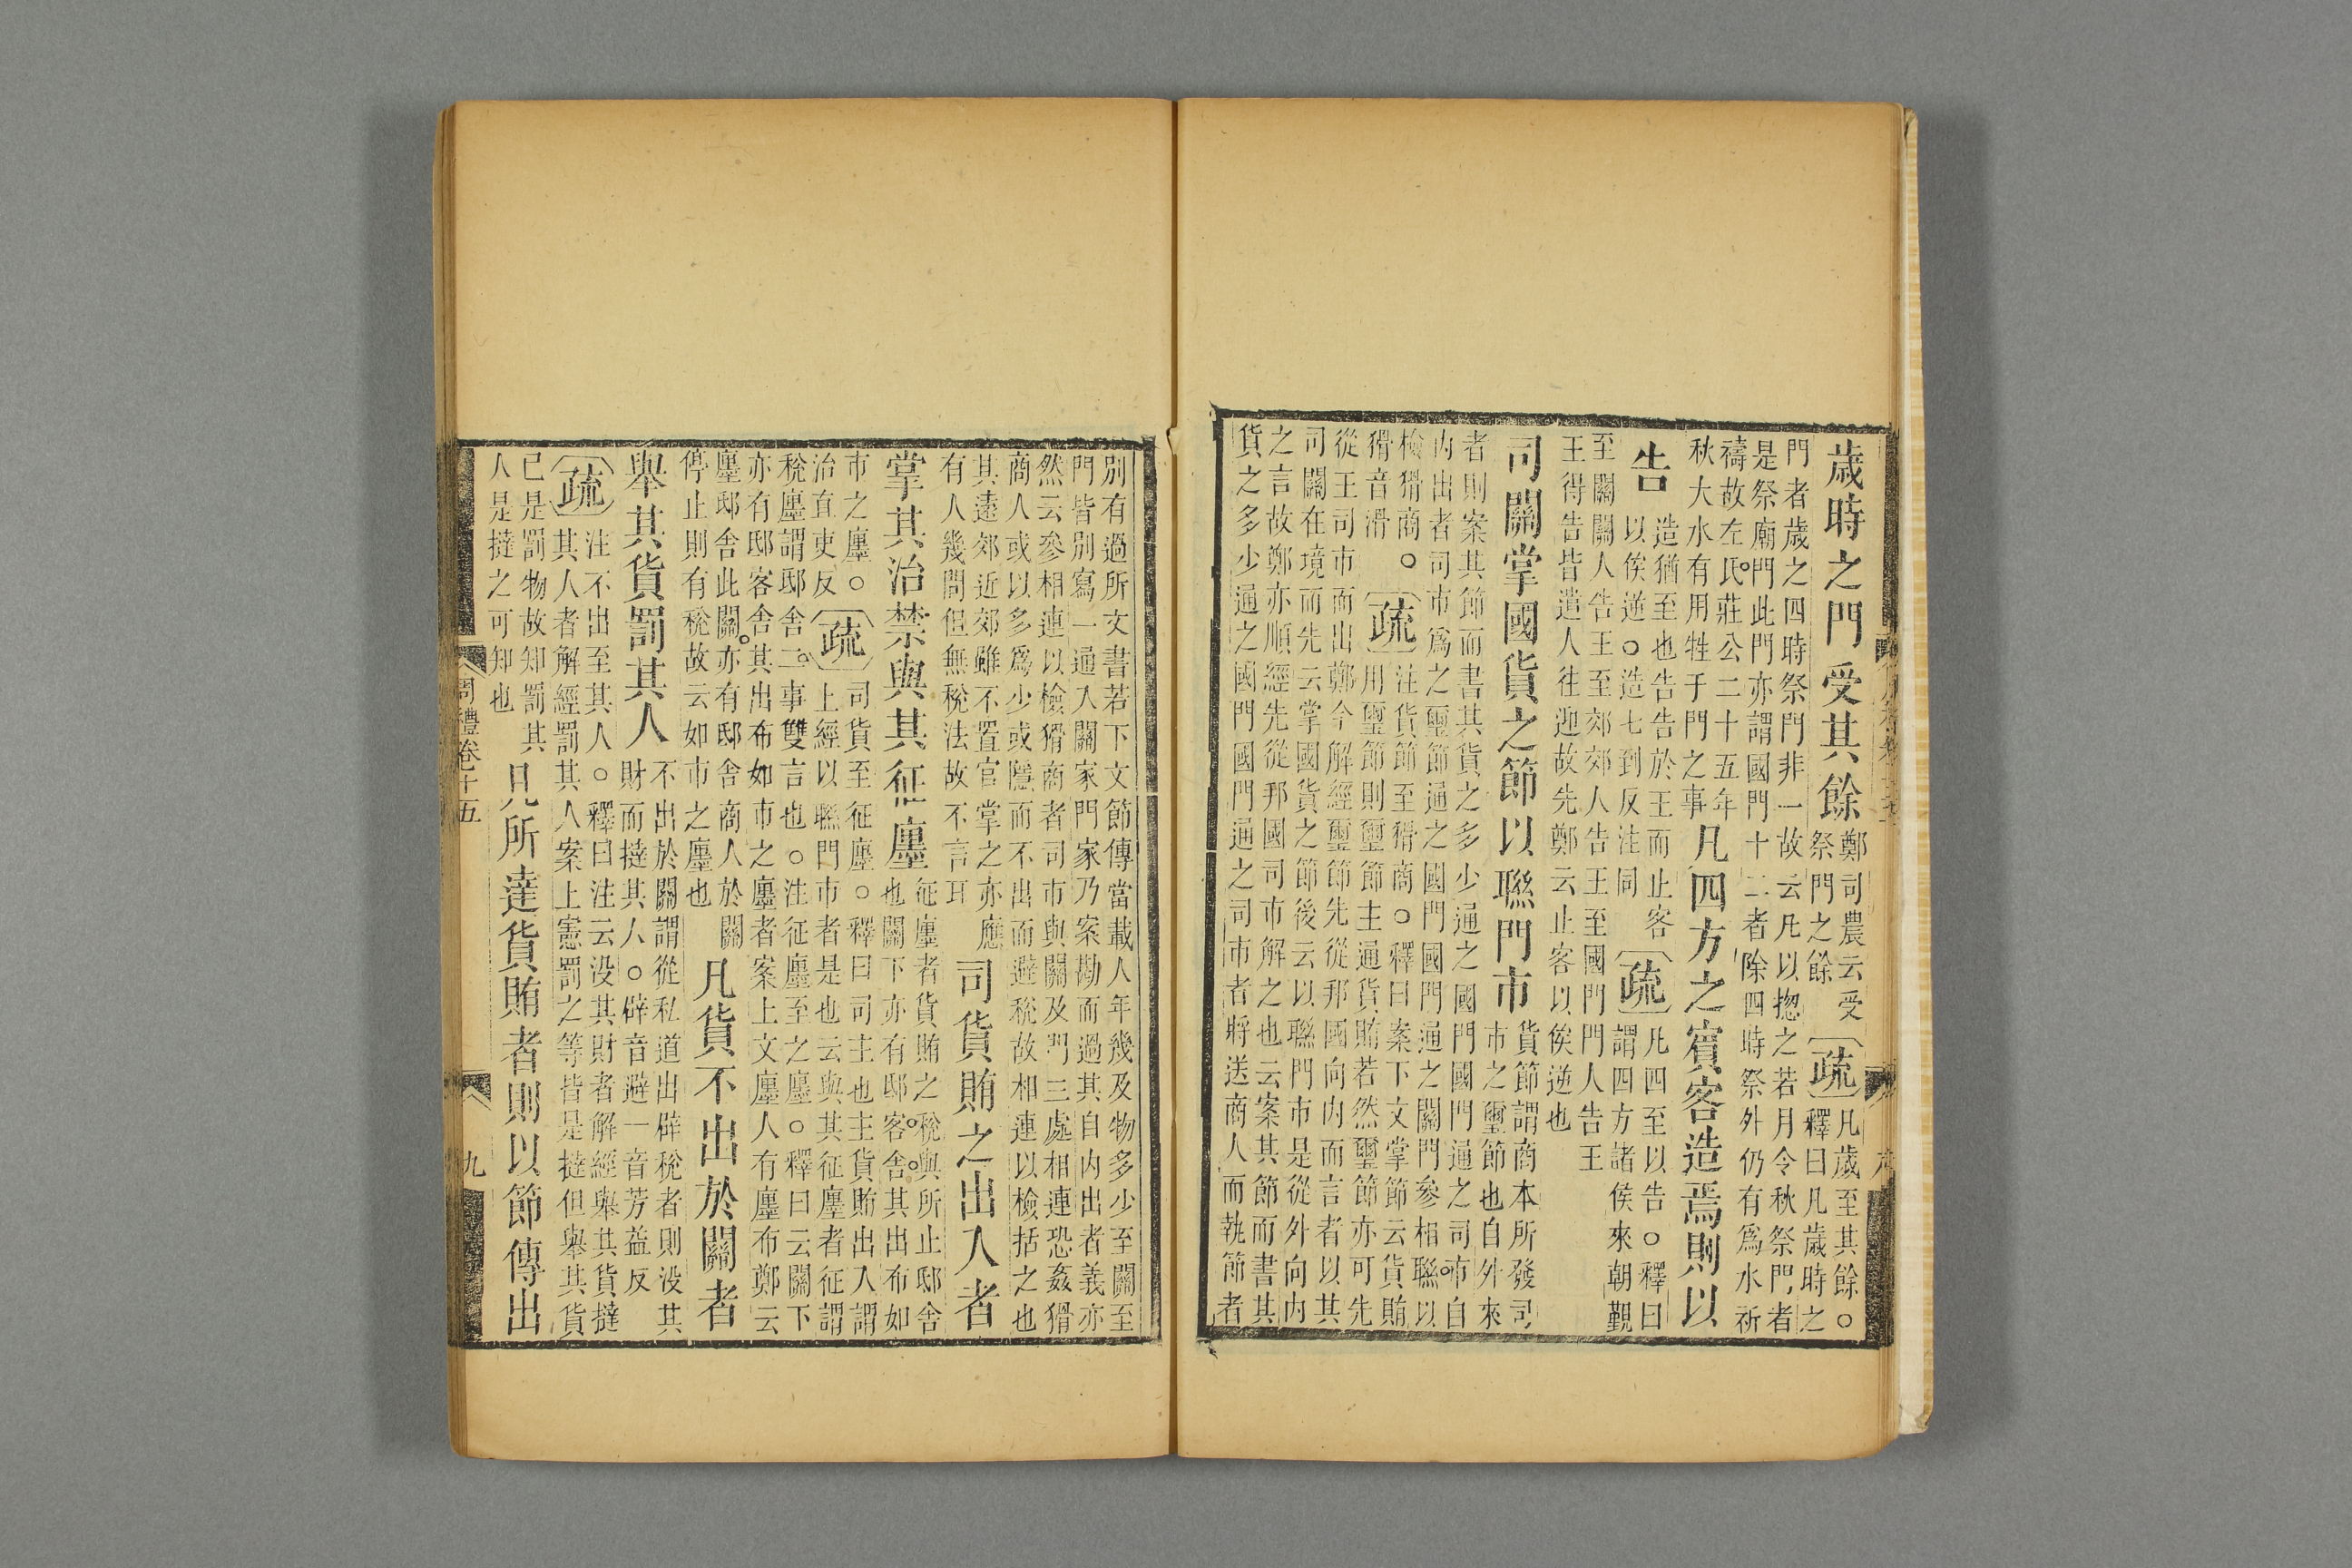 歲時之門受其餘
鄭司農云受
祭門之餘
疏
凡歲至其餘○
釋曰凡歲時之
門者歲之四時祭門非一故云凡以揔之若月令秋祭門者
是祭廟門此門亦謂國門十二者除四時祭外仍有爲水祈
禱故左氏莊公二十五年
秋大水有用牲于門之事
凡四方之賔客造焉則以
告
造猶至也告告於王而止客
以俟逆○造七到反注同
疏
凡四至以告○釋曰
謂四方諸侯來朝覲
至關關人告王至郊郊人告王至國門門人告王
王得告皆遣人往迎故先鄭云止客以俟逆也
司關掌國貨之節以聯門市
貨節謂商本所發司
市之璽節也自外來
者則案其節而書其貨之多少通之國門國門通之司市自
内出者司市爲之璽節通之國門國門通之關門參相聯以
檢猾商○
猾音滑
疏
注貨節至猾商○釋曰案下文掌節云貨賄
用璽節則璽節主通貨賄若然璽節亦可先
從王司市而出鄭今解經璽節先從邦國向内而言者以其
司關在境而先云掌國貨之節後云以聯門市是從外向内
之言故鄭亦順經先從邦國司市解之也云案其節而書其
貨之多少通之國門國門通之司市者將送商人而執節者
別有過所文書若下文節傳當載人年幾及物多少至關至
門皆別寫一通入關家門家乃案勘而過其自内出者義亦
然云參相連以檢猾商者司市與關及門三處相連恐姦猾
商人或以多爲少或隱而不出而避稅故相連以檢括之也
其遠郊近郊雖不置官掌之亦應
有人幾間但無稅法故不言耳
司貨賄之出入者
掌其治禁與其征廛
征廛者貨賄之稅與所止邸舍
也關下亦有邸客舍其出布如
市之廛○
治直吏反
疏
司貨至征廛○釋曰司主也主貨賄出入謂
上經以聯門市者是也云與其征廛者征謂
稅廛謂邸舍二事雙言也○注征廛至之廛○釋曰云關下
亦有邸客舍其出布如市之廛者案上文廛人有廛布鄭云
廛邸舍此關亦有邸舍商人於關
停止則有稅故云如市之廛也
凡貨不出於關者
舉其貨罰其人
不出於關謂從私道出辟稅者則没其
財而撻其人○辟音避一音芳益反
疏
注不出至其人○釋曰注云没其財者解經舉其貨撻
其人者解經罰其人案上憲罰之等皆是撻但舉其貨
已是罰物故知罰其
人是撻之可知也
凡所達貨賄者則以節傳出
周禮卷十五
九